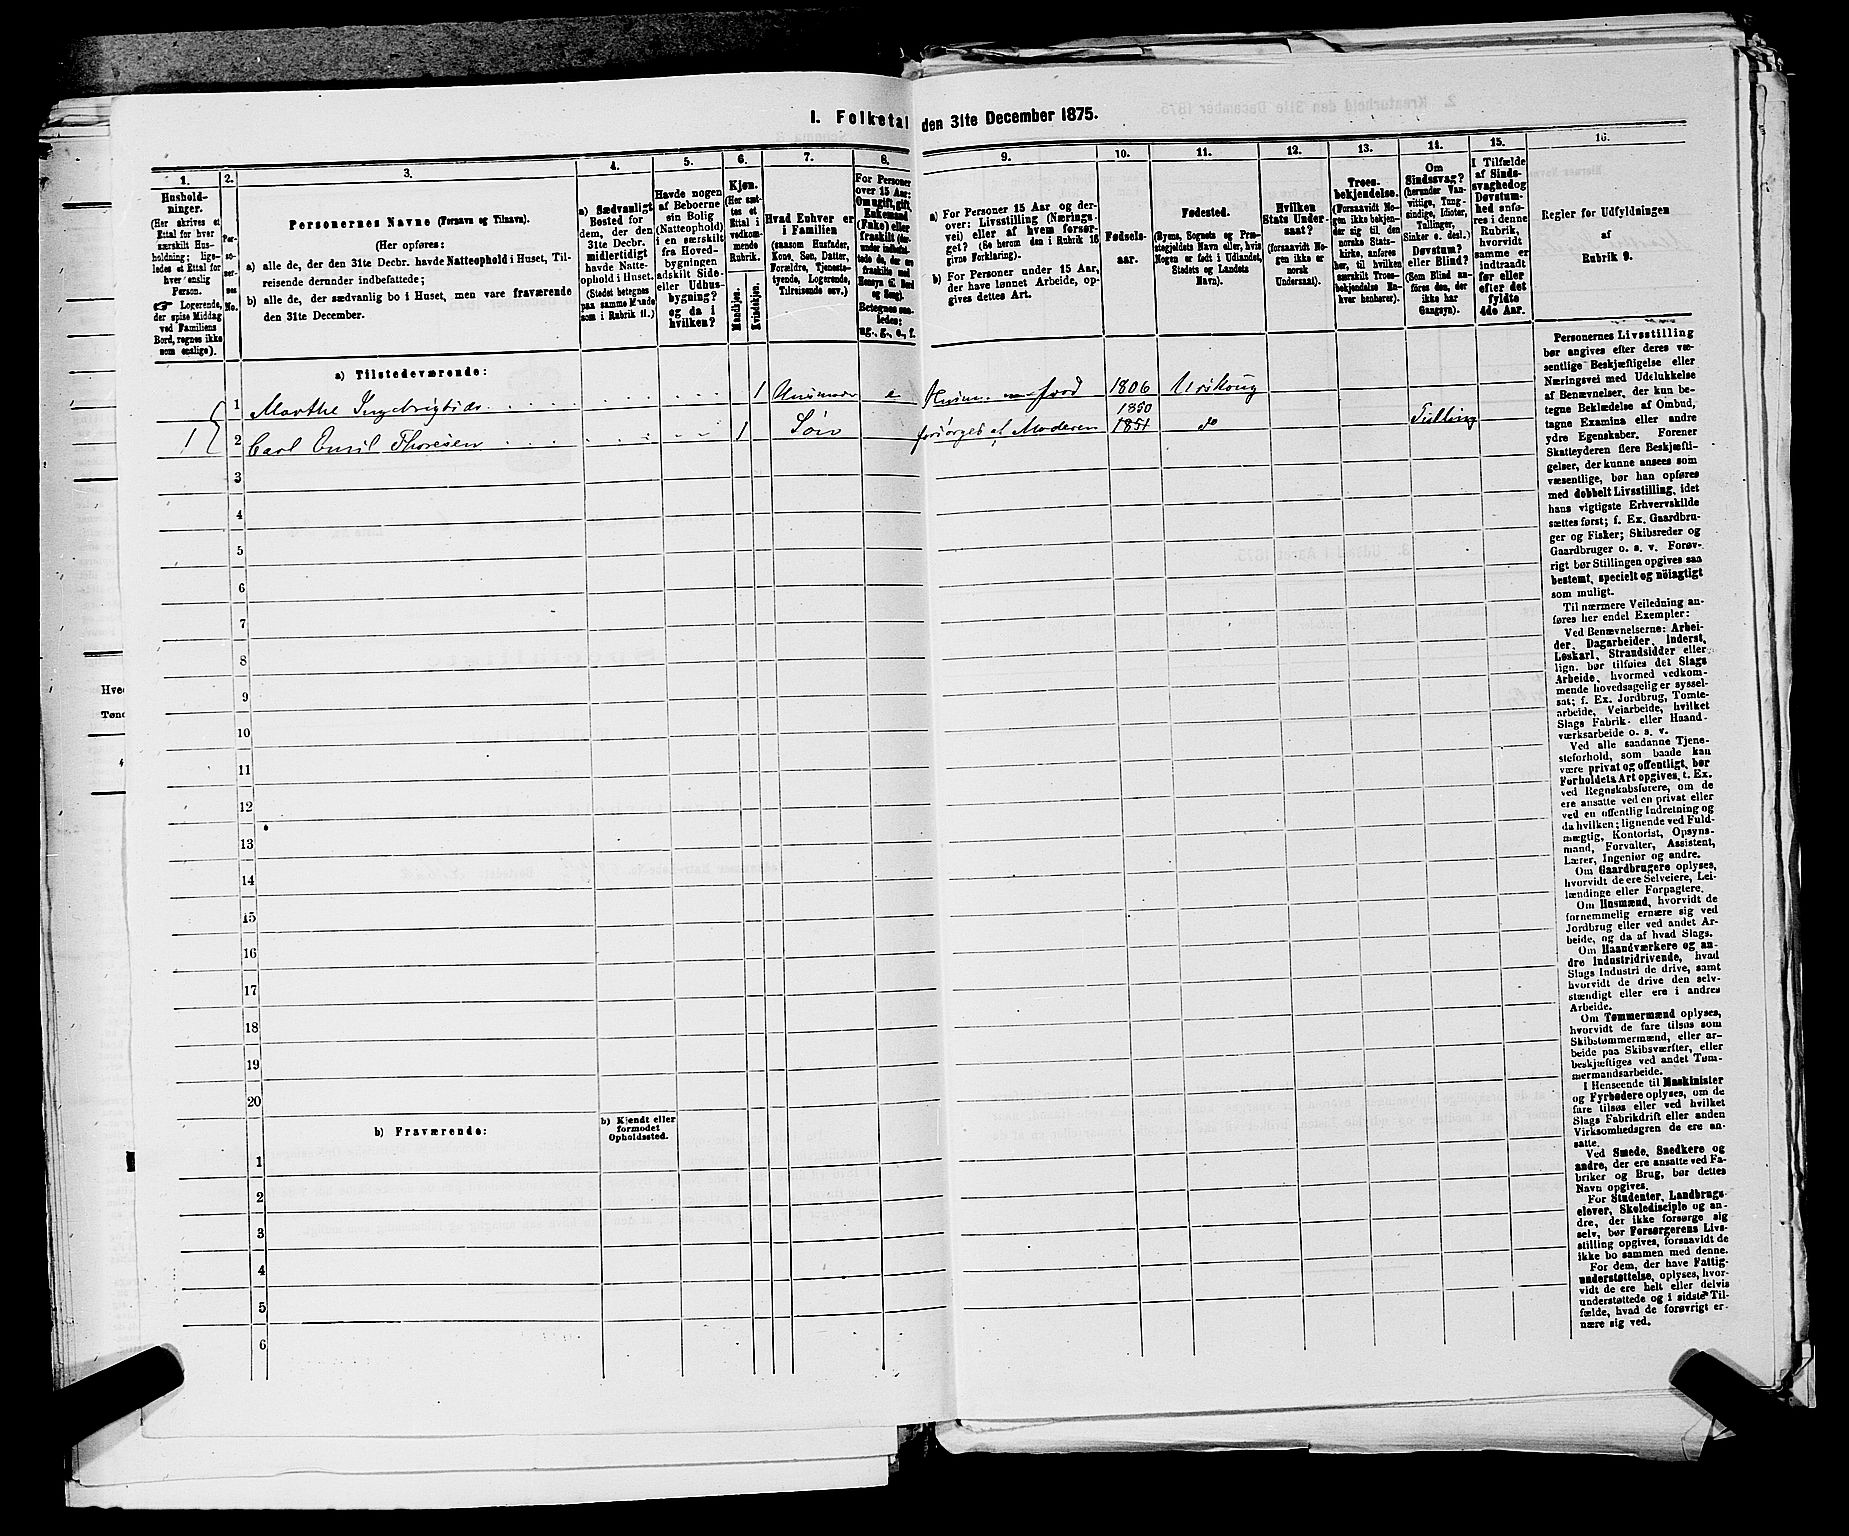 I. Folketal den 31te December 1875.
1.
2.
3.
4.
5.
6.
7.
8.
9.
10.
11.
12.
13.
14.
15.
16.
Hushold-
ninger.
(Her skrives et
Ettal for hver
særskilt Hus-
holdning; lige-
ledes et Ettal for
hver enslig
Person.
☞ Logerende,
der spise Middag
ved Familiens
Bord, regnes ikke
som enslige).
Per-
so-
ner-
nes
No.
Personernes Navne (Fornavn og Tilnavn).
(Her opføres:
a) alle de, der den 31te Decbr. havde Natteophold i Huset, Til-
reisende derunder indbefattede;
b) alle de, der sædvanlig bo i Huset, men vare fraværende
den 31te December.
a) Sædvanligt
Bosted for
dem, der den
31te Decbr.
midlertidigt
havde Natte-
ophold i Huset.
(Stedet betegnes
paa samme Maade
som i Rubrik 11.)
Havde nogen
af Beboerne
sin Bolig
(Natteophold)
i en særskilt
fra Hoved-
bygningen
adskilt Side-
eller Udhus-
bygning?
og da i
hvilken?
Kjøn.
(Her sæt-
tes et
Ettal i
vedkom-
mende
Rubrik.
Mandkjøn.
Kvindekjøn.
Hvad Enhver er
i Familien
(saasom Husfader,
Kone, Søn, Datter,
Forældre, Tjeneste-
tyende, Logerende,
Tilreisende osv.)
For Personer
over 15 Aar:
Om ugift, gift,
Enkemand
(Enke) eller
fraskilt
Betegnes saa-
ledes:
ug., g., e., f.
a) For Personer 15 Aar og der-
over: Livsstilling (Nærings-
vei) eller af hvem forsør-
get? (Se herom den i Rubrik 16
givne Forklaring).
b) For Personer under 15 Aar,
der have lønnet Arbeide, op-
gives dettes Art.
Fødsels-
aar.
Fødested.
(Byens, Sognets og Præ-
stegjeldets Navn eller, hvis
Nogen er født i Udlandet,
Stedets og Landets
Navn).
Hvilken
Stats Under-
saat?
(forsaavidt No-
gen ikke er
norsk
Undersaat).
Troes-
bekjendelse.
(Forsaavidt No-
gen ikke bekjen-
der sig til den
norske Stats-
kirke, anføres
her, til hvilken
særskilt Troes-
bekjendelse En-
hver henhører).
Om
Sindssvag?
(herunder Van-
vittige, Tung-
sindige, Idioter,
Tullinger,
Sinker o. desl.).
Døvstum?
eller Blind?
(Som Blind an-
føres den, der
ikke har
Gangsyn).
I Tilfælde
af Sinds-
svaghedog
Døvstum-
hed anfø-
res i denne
Rubrik,
hvorvidt
samme er
indtraadt
før eller
efter det
fyldte
4de Aar.
Regler for Udfyldningen
af
Rubrik 9.
a) Tilstedeværende:
1 Marthe Ingebrigtsdr. 1 e jord 1806 Urskoug
1 2 Carl Emil Thoresen 1 Søn forsørges af Moderen 1850 1851 do Tulling
3
4
5
6
7
8
9
10
11
12
13
14
15
16
17
18
19
20
b) Fraværende:
b) Kjendt eller
formodet
Opholdssted.
1
2
3
4
5
6
Personernes Livsstilling
bør angives efter deres væ-
sentlige Beskjæftigelse eller
Næringsvei med Udelukkelse
af Benævnelser, der kun be-
tegne Beklædelse af Ombud,
tagne Examina eller andre
ydre Egenskaber. Forener
Skatteyderen flere Beskjæfti-
gelser, der kunne ansees som
væsentlige, bør han opføres
med dobbelt Livsstilling, idet
hans vigtigste Erhvervskilde
sættes først; f. Ex. Gaardbru-
ger og Fisker; Skibsreder og
Gaardbruger o. s. v. Forøv-
rigt bør Stillingen opgives saa
bestemt, specielt og nöiagtigt
som muligt.
Til nærmere Veiledning an-
føres her endel Exempler:
Ved Benævnelserne: Arbei-
der, Dagarbeider, Inderst,
Løskarl, Strandsidder eller
lign. bør tilføies det Slags
Arbeide, hvormed vedkom-
mende hovedsagelig er syssel-
sat; f. Ex. Jordbrug, Tomte-
arbeide, Veiarbeide, hvilket
Slags Fabrik- eller Haand-
værksarbeide o. s. v.
Ved alle saadanne Tjene-
steforhold, som baade kan
være privat og offentligt, bør
Forholdets Art opgives, t. Ex.
ved Regnskabsførere, om de
ere ansatte ved en privat eller
ved en offentlig Indretning og
da hvilken; lignende ved Fuld-
mægtig, Kontorist, Opsyns-
mand, Forvalter, Assistent,
Lærer, Ingeniør og andre.
Om Gaardbrugere oplyses,
hvorvidt de ere Selveiere, Lei-
lændinge eller Forpagtere.
Om Husmænd, hvorvidt de
fornemmelig ernære sig ved
Jordbrug eller ved andet Ar-
beide, og da af hvad Slags.
Om Haandværkere og an-
dre Industridrivende, hvad
Slags Industri de drive, samt
hvorvidt de drive den selv-
stændigt eller ere i andres
Arbeide.
Om Tømmermænd oplyses,
hvorvidt de fare tilsøs som
Skibstømmermænd, eller ar-
beide paa Skibsværfter, eller
beskjæftiges ved andet Tøm-
mermandsarbeide.
I Henseende til Maskinister
og Fyrbødere oplyses, om de
fare tilsøs eller ved hvilket
Slags Fabrikdrift eller anden
Virksomhedsgren de ere an-
satte.
Ved Smede, Snedkere og
andre, der ere ansatte ved Fa-
briker og Brug, bør dettes
Navn opgives.
For Studenter, Landbrugs-
elever, Skoledisciple og an-
dre, der ikke forsørge sig
selv, bør Forsørgerens Livs-
stilling opgives, forsaavidt de
ikke bo sammen med denne.
For dem, der have Fattig-
understøttelse, oplyses, hvor-
vidt de ere helt eller delvis
understøttede og i sidste Til-
fælde, hvad de forøvrigt er-
nære sig ved.